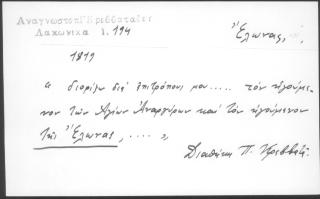 Ἀναγνωστοπ. Κρεββατάς
Λακωνικά 1. 194
Ἔλωνας,
1819
" διορίζω διά ἐπιτρόπους μου..... τόν ἡγούμε-
νον τῶν Ἁγίων Ἀναργύρων καί τόν ἡγούμενον
τῆς Ἔλωνας, .... "
Διαθήκη Π. Κρεββατᾶ